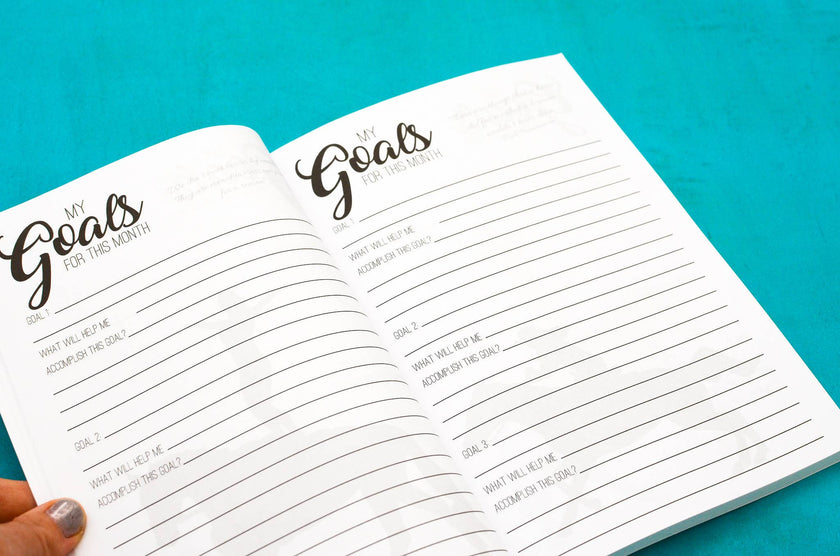 MY
Goals
FOR THIS MONTH
GOAL 1:
WHAT WILL HELP ME
ACCOMPLISH THIS GOAL?
GOAL 2:
WHAT WILL HELP ME
ACCOMPLISH THIS GOAL?
MY
Goals
FOR THIS MONTH
GOAL 1:
WHAT WILL HELP ME
ACCOMPLISH THIS GOAL?
GOAL 2:
WHAT WILL HELP ME
ACCOMPLISH THIS GOAL?
GOAL 3:
WHAT WILL HELP ME
ACCOMPLISH THIS GOAL?